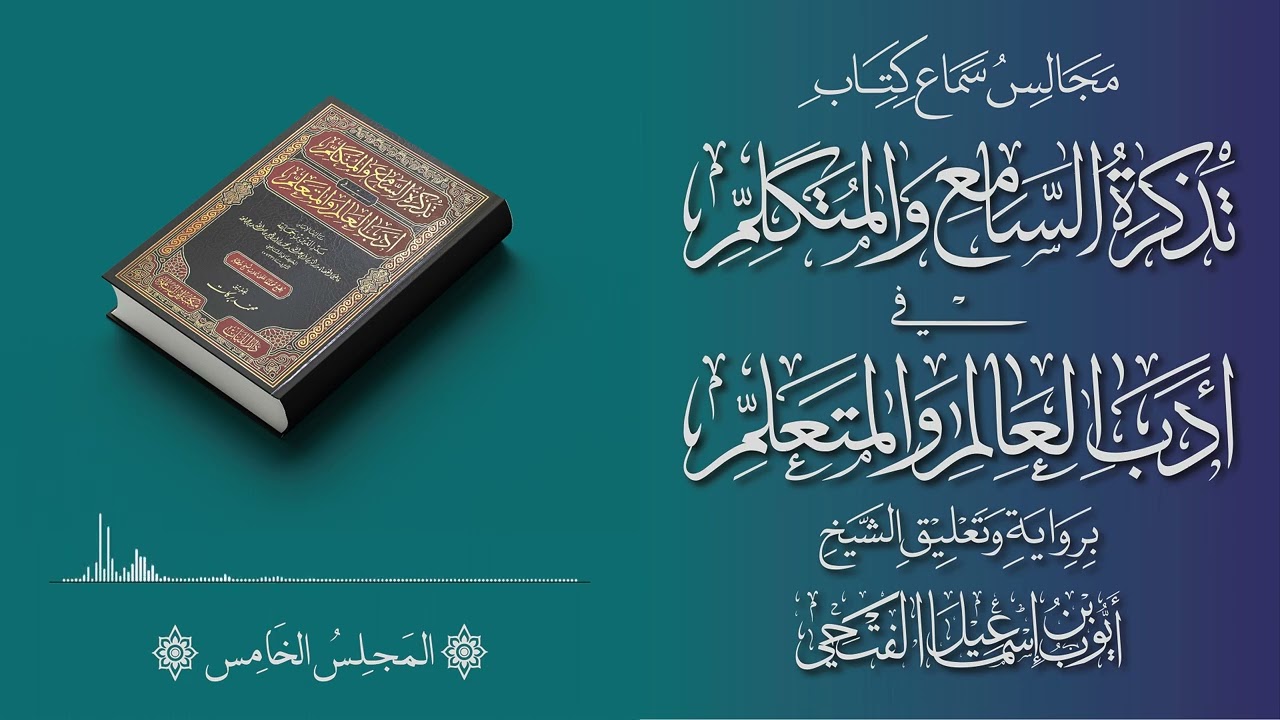 مَجَالِسُ سَمَاع كِتَِابِ
تَذكِرَةُ السَّامِع وَالمُتَكَلِّمِ
في
أدَبَِ العَالِمِ وَالمتَعَلِّمِ
بِرِوَايَةِ وَتَعْلِيْقِ الشَّيخِ
أَيُّوبَ بْنُ إسْمَاعِيْل الفَتْحِيِّ
تذكرة السامع والمتكلم
في
أدب العالم والمتعلم
محمد بركات
دار اللباب
المَجلِسُ الخَامِس